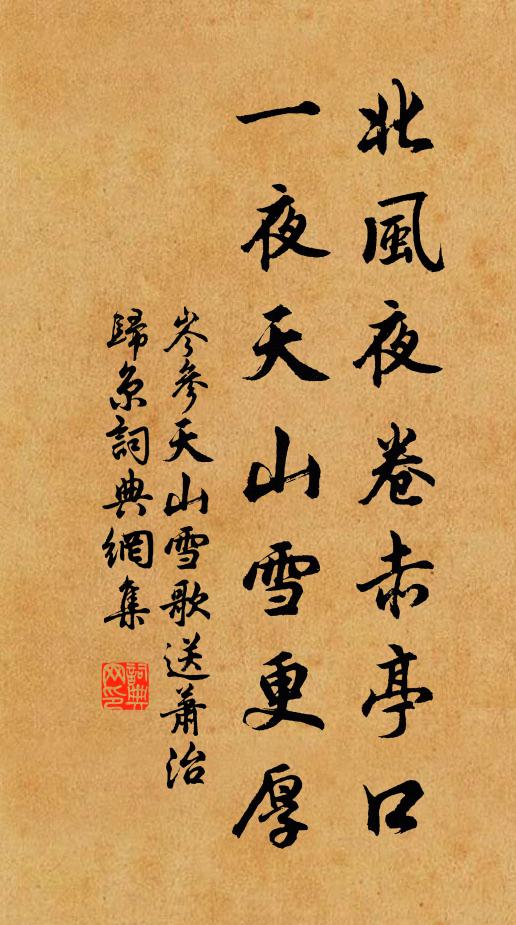 北風夜卷赤亭口
一夜天山雪更厚
岑參天山雪歌送蕭治
歸京詞典網集
詞典
网印